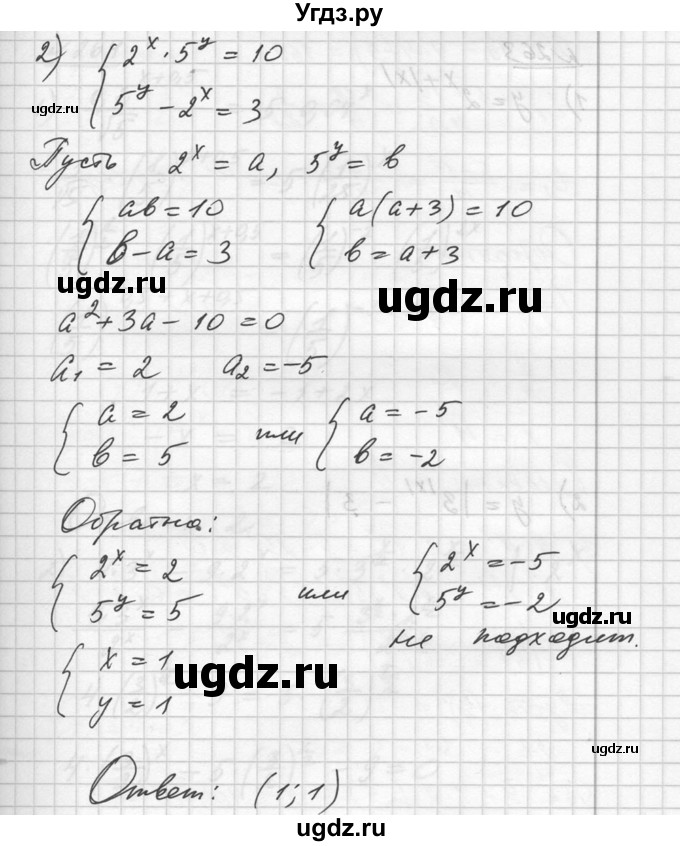 Угдз.ру
2) { 2^x · 5^y = 10
5^y − 2^x = 3
ugdz.ru
Пусть 2^x = a, 5^y = в
{ aв = 10 { a(a+3) = 10
в − a = 3 в = a + 3
ugdz.ru ugdz.ru
a^2 + 3a − 10 = 0
a_1 = 2 a_2 = −5
{ a = 2 или { a = −5
в = 5 в = −2
Обратна:
{ 2^x = 2 или { 2^x = −5
5^y = 5 5^y = −2
ugdz.ru
не подходит.
{ x = 1
y = 1
ugdz.ru
ugdz.ru
Ответ: (1; 1)
ugdz.ru